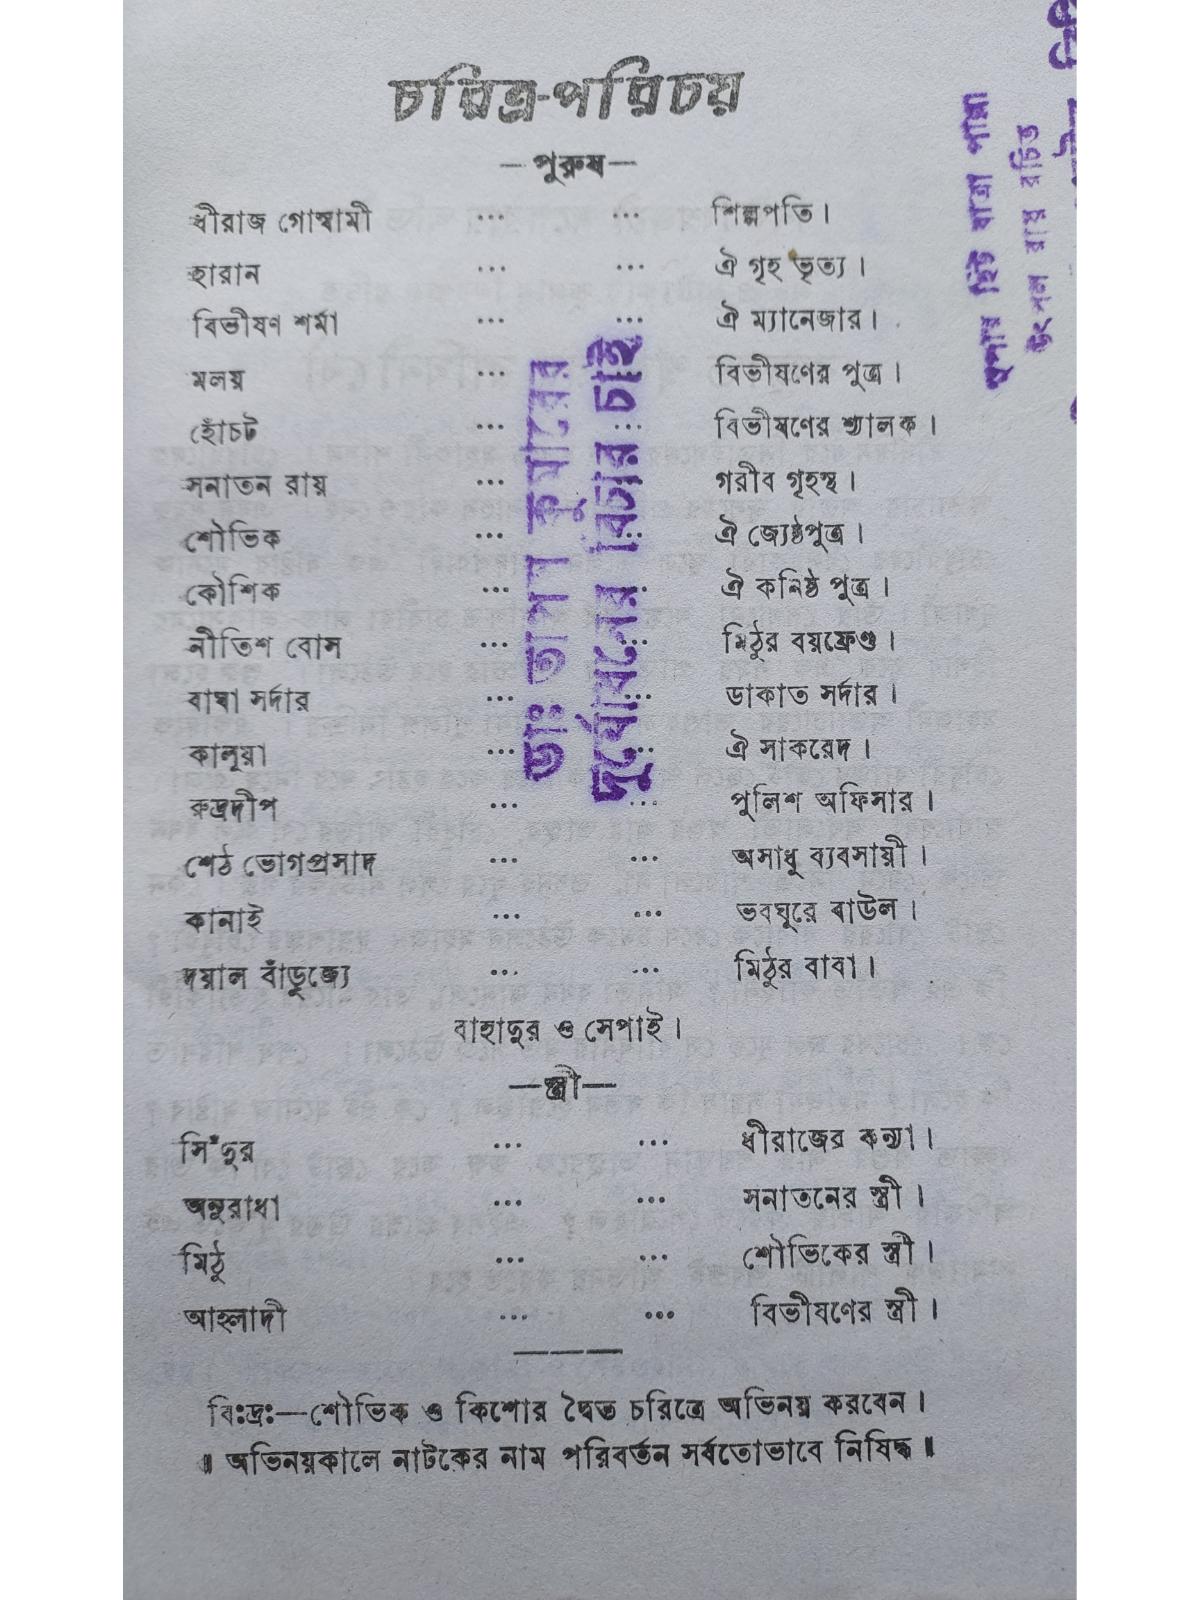 চরিত্র-পরিচয়
—পুরুষ—
ধীরাজ গোস্বামী ... ... শিল্পপতি।
হারান ... ... ঐ গৃহ ভৃত্য।
বিভীষণ শর্মা ... ... ঐ ম্যানেজার।
মলয় ... বিভীষণের পুত্র।
হোঁচট ... ... বিভীষণের শ্যালক।
সনাতন রায় ... গরীব গৃহস্থ।
শৌভিক ... ... ঐ জ্যেষ্ঠপুত্র।
কৌশিক ... ... ঐ কনিষ্ঠ পুত্র।
নীতিশ বোস ... ... মিঠুর বয়ফ্রেণ্ড।
বাঘা সর্দার ... ... ডাকাত সর্দার।
কালুয়া ... ... ঐ সাকরেদ।
রুদ্রদীপ ... ... পুলিশ অফিসার।
শেঠ ভোগপ্রসাদ ... ... অসাধু ব্যবসায়ী।
কানাই ... ... ভবঘুরে বাউল।
দয়াল বাঁড়ুজ্যে ... ... মিঠুর বাবা।
বাহাদুর ও সেপাই।
—স্ত্রী—
সিঁদুর ... ... ধীরাজের কন্যা।
অনুরাধা ... ... সনাতনের স্ত্রী।
মিঠু ... ... শৌভিকের স্ত্রী।
আহ্লাদী ... ... বিভীষণের স্ত্রী।
বিঃদ্রঃ—শৌভিক ও কিশোর দ্বৈত চরিত্রে অভিনয় করবেন।
॥ অভিনয়কালে নাটকের নাম পরিবর্তন সর্বতোভাবে নিষিদ্ধ॥
ডাঃ তাপস কুমারের
দুর্যোধনের বিচার চাই
সুপার হিট যাত্রা পালা
উৎপল রায় রচিত